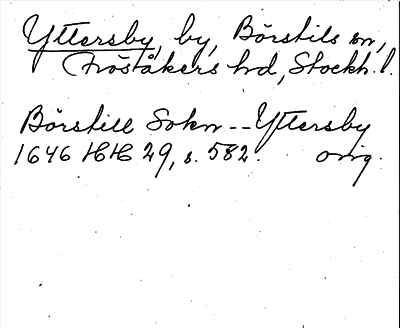 Yttersby, by, Börstils sn,
Fröåkers hd, Stockh. l.
Börstill Sokn -- Yttersby
1646 HH 29, s. 582. orig.